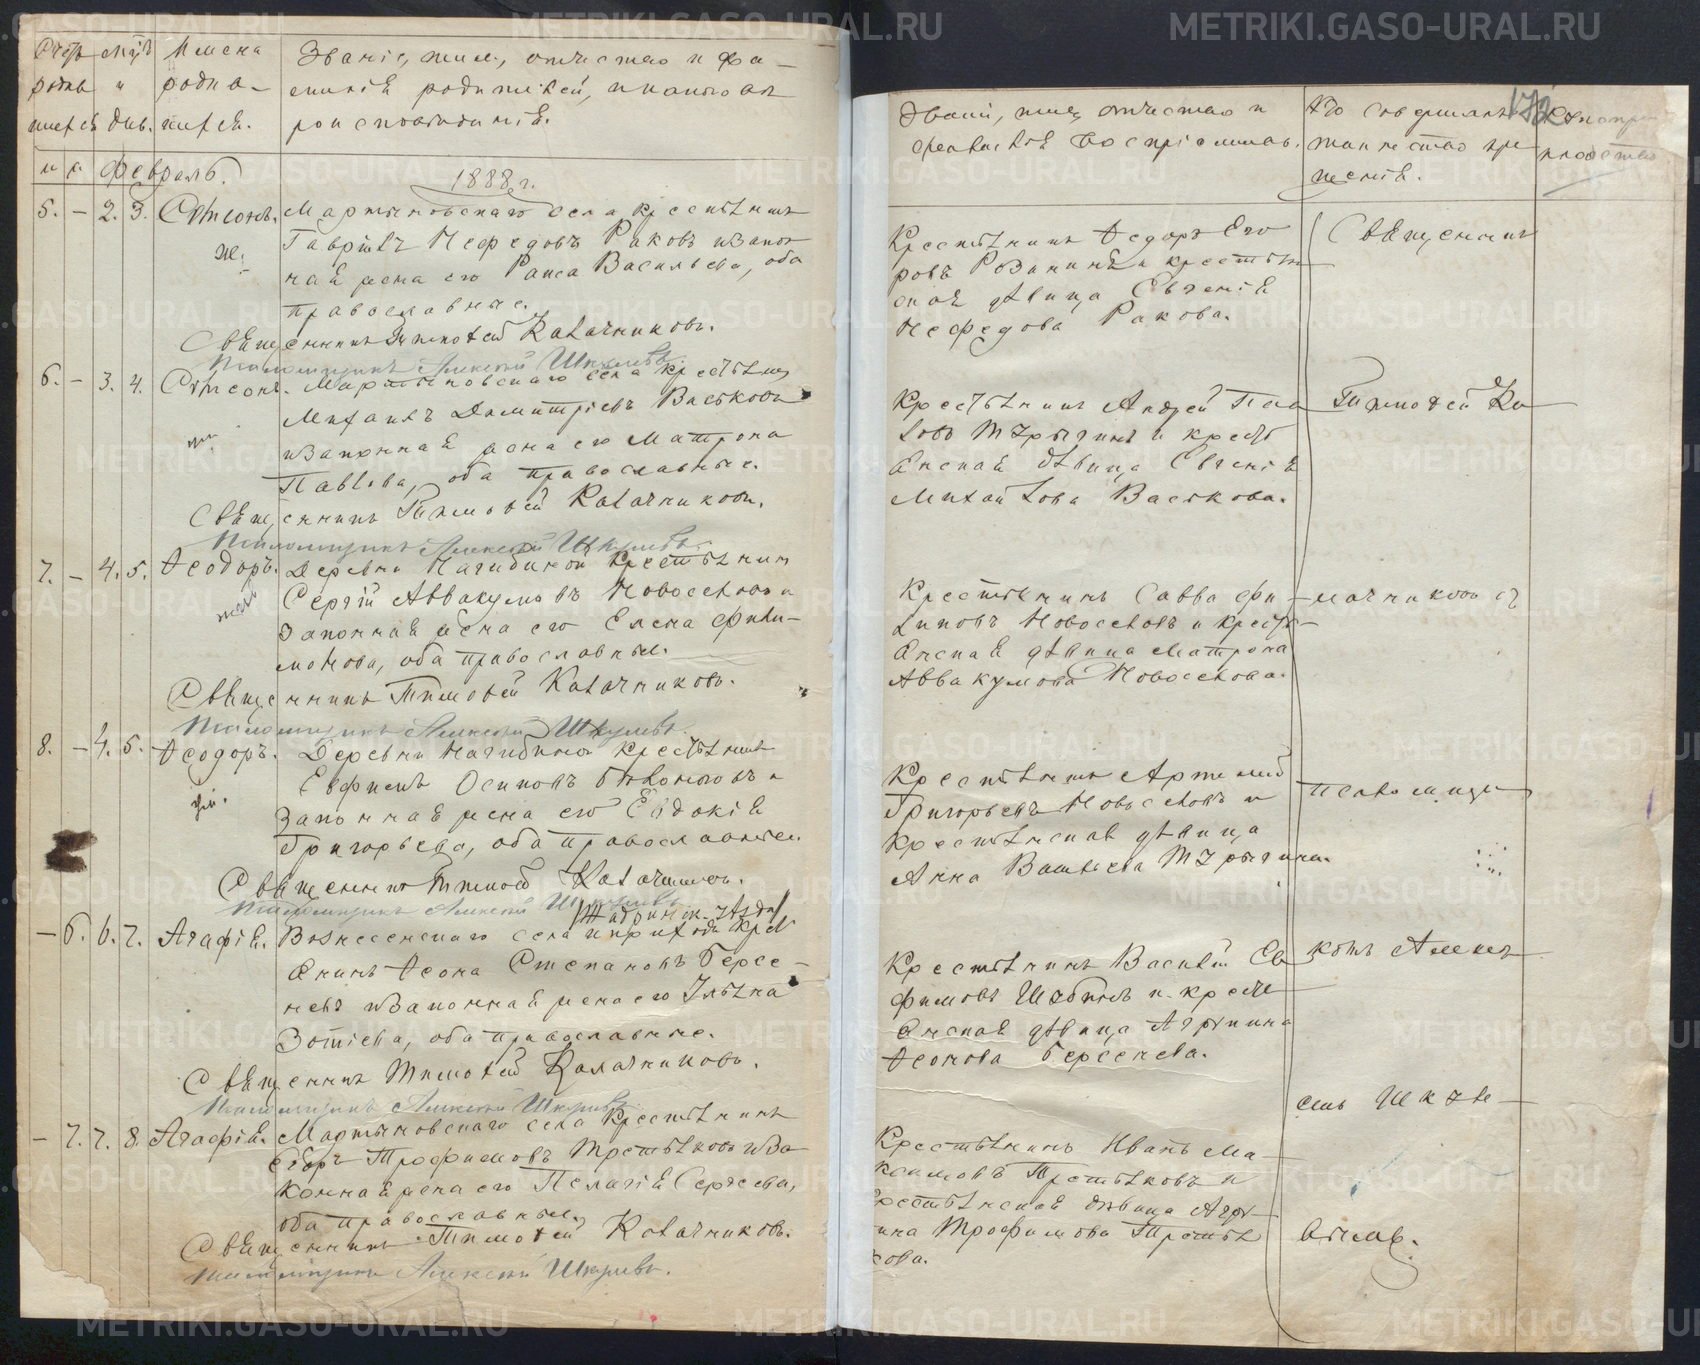 Имена
Званіе, имя, отчество и фа-
родив- родив-
милія родителей, и какого вѣ
шихся див. шихся.
роисповѣданія.
Февраль.
1888 г.
5. - 2. 3. Симеонъ. Мартыновскаго села крестьянинъ
Гавріилъ Нефедовъ Раковъ и закон
ная жена его Раиса Васильева, оба
православные.
Священникъ Тимоѳей Калачниковъ.
Псаломщикъ Алексей Шкулевъ.
6. - 3. 4. Симеонъ. Мартыновскаго села крестьянинъ
Михаилъ Димитріевъ Васьковъ
и законная жена его Матрона
Павлова, оба православные.
Священникъ Тимоѳей Калачниковъ.
Псаломщикъ Алексей Шкулевъ.
7. - 4. 5. Ѳеодоръ. Деревни Нагибиной крестьянинъ
Сергій Аввакумовъ Новоселовъ и
законная жена его Елена Фили-
монова, оба православные.
Священникъ Тимоѳей Калачниковъ.
Псаломщикъ Алексей Шкулевъ.
8. - 4. 5. Ѳеодоръ. Деревни Нагибиной крестьянинъ
Евфимъ Осиповъ и
законная жена его Евдокія
Григорьева, оба православные.
Священникъ Тимоѳей Калачниковъ.
Псаломщикъ Алексей Шкулевъ.
- 6. 6. 7. Агафія. Вознесенскаго села и прихода крест
янинъ Ѳеона Степановъ Берсе-
невъ и законная жена его Ульяна
Зотіева, оба православные.
Священникъ Тимоѳей Калачниковъ.
Псаломщикъ Алексей Шкулевъ.
- 7. 7. 8. Агафія. Мартыновскаго села крестьянинъ
Егоръ Трофимовъ Третьяковъ и за
конная жена его Пелагія Сергеева,
оба православные.
Священникъ Тимоѳей Калачниковъ.
Псаломщикъ Алексей Шкулевъ.
Званіе, имя, отчество и
фамилія воспріемниковъ.
Кто совершалъ
таинство кре
щенія.
Крестьянинъ Ѳедоръ Его
ровъ и крестьян
ская дѣвица Евгенія
Нефедова Ракова.
Крестьянинъ Андрей Пав
ловъ и кресть
янская дѣвица Евгенія
Михайлова Васькова.
Крестьянинъ Савва Фи-
липовъ Новоселовъ и кресть-
янская дѣвица Матрона
Аввакумова Новоселова.
Крестьянинъ Артемий
Григорьевъ Новоселовъ и
крестьянская дѣвица
Анна
Крестьянинъ Василій Ев
фимовъ и кресть
янская дѣвица Агрипина
Ѳеонова Берсенева.
Крестьянинъ Иванъ Ма-
ксимовъ Третьяковъ и
крестьянская дѣвица Агри-
пина Трофимова Третья
кова.
Священникъ
Тимоѳей Ка
лачниковъ съ
псаломщи
комъ Алек
сеемъ Шкуле
вымъ.
METRIKI.GASO-URAL.RU